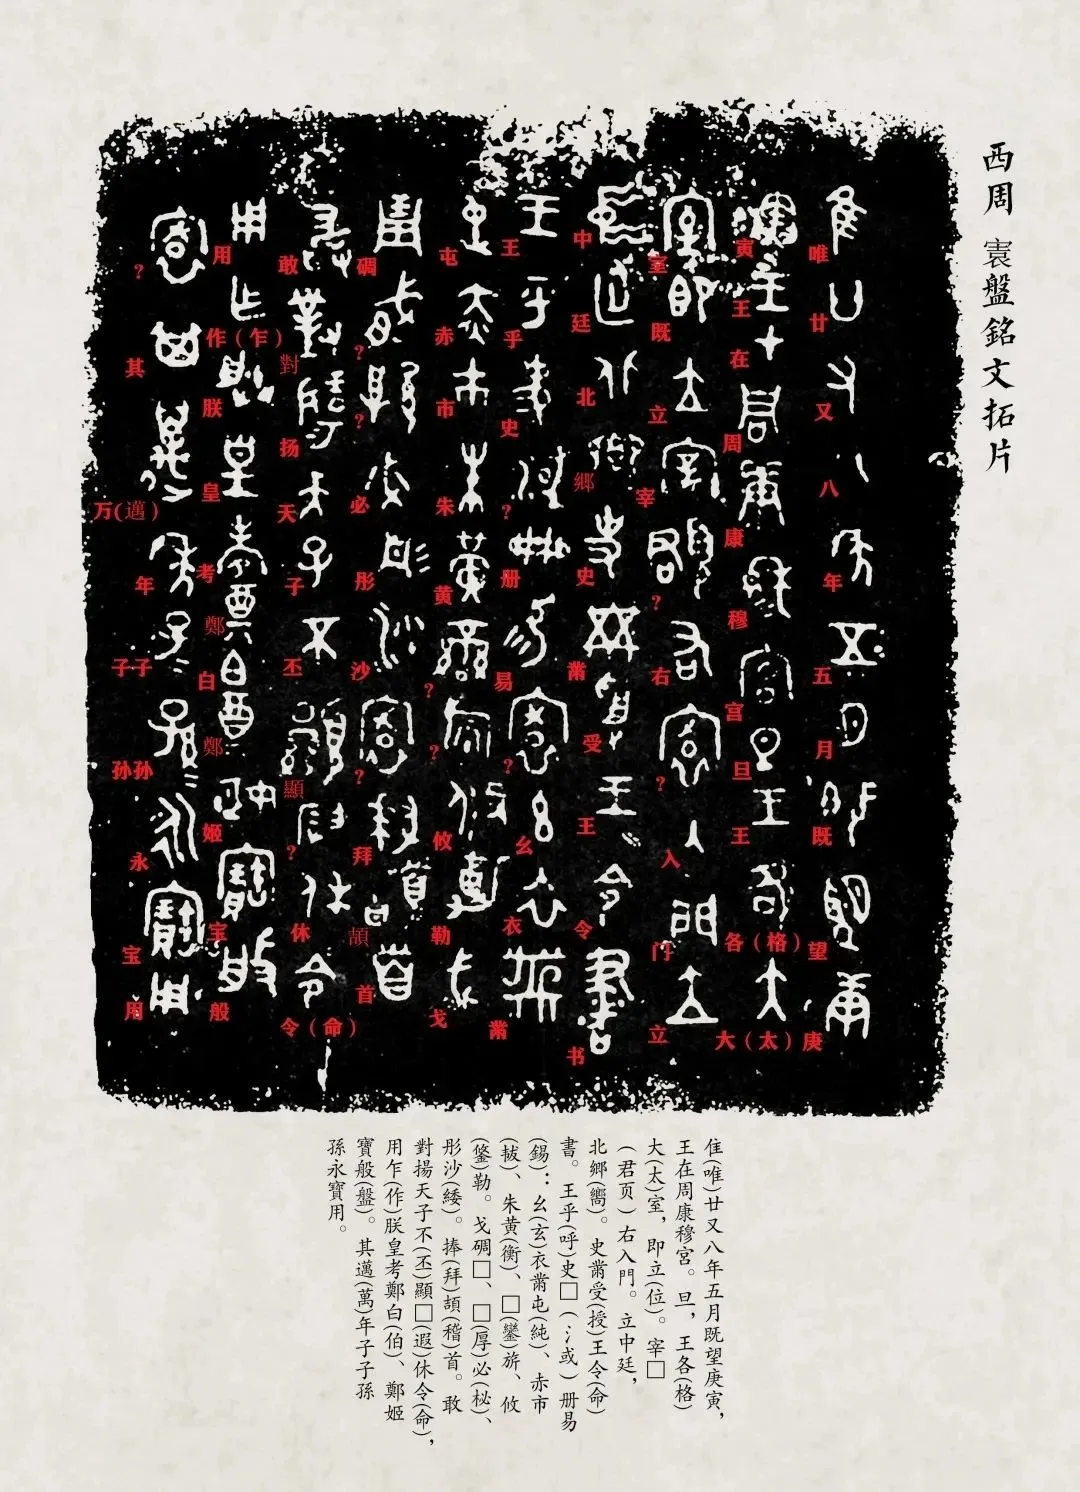 西周 寰盤銘文拓片
唯廿又八年五月既望庚
寅王在周康穆宫旦王各（格）大（太）
室既立宰?右?入门立
中廷北鄉史黹受王令书
王乎史?册易?幺衣黹
屯赤市朱黄??攸勒戈
碉??必彤沙?拜頡首
敢對扬天子丕顯?休令（命）
用作（乍）朕皇考鄭白鄭姬宝般
?其万(邁)年子子孙孙永宝用
隹(唯)廿又八年五月既望庚寅，
王在周康穆宮。旦，王各(格)
大(太)室，即立(位)。宰□
(君页)右入門。立中廷，
北鄉(嚮)。史黹受(授)王令(命)
書。王乎(呼)史□(氵或)册易
(錫)：幺(玄)衣黹屯(純)、赤市
(韍)、朱黄(衡)、□(鑾)旂、攸
(鋚)勒。戈碉□、□(厚)必(柲)、
彤沙(緌)。捧(拜)頡(稽)首。敢
對揚天子不(丕)顯□(遐)休令(命)，
用乍(作)朕皇考鄭白(伯)、鄭姬
寶般(盤)。其邁(萬)年子子孫
孫永寶用。